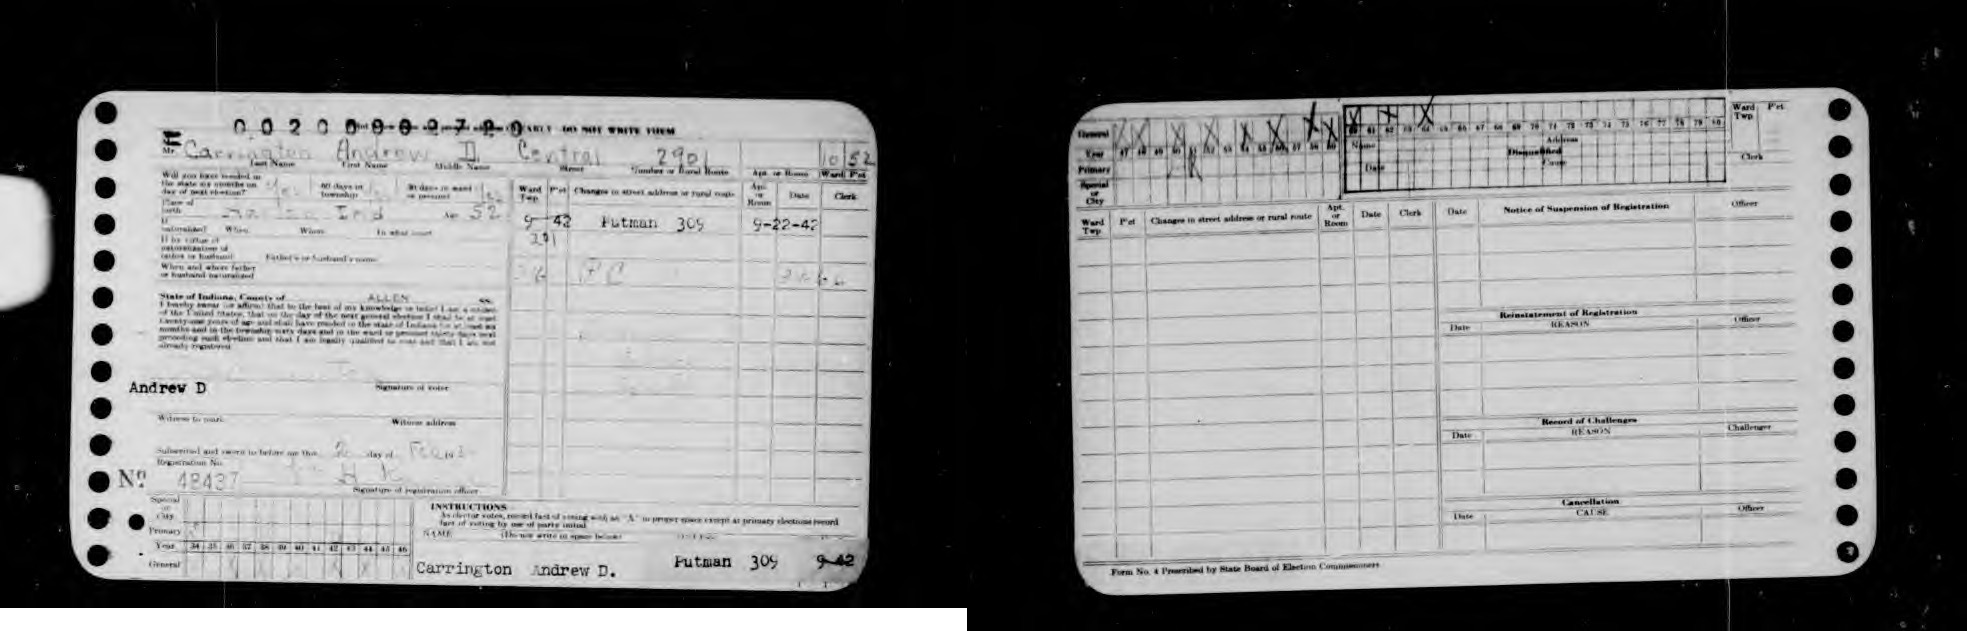 DO NOT WRITE THEM
Mr. Carrington Andrew D. Central 2901 10 52
Last Name First Name Middle Name Street Number or Rural Route Apt. or Room Ward P'ct
Will you have resided in the state six months on day of next election? Yes 60 days in township 30 days in ward or precinct Yes
Place of birth Ind Age 52
If naturalized? When Where In what court
If by virtue of naturalization of father or husband Father's or husband's name
When and where father or husband naturalized
State of Indiana, County of ALLEN ss.
I hereby swear (or affirm) that to the best of my knowledge or belief I am a citizen
of the United States, that on the day of the next general election I shall be at least
twenty-one years of age and shall have resided in the state of Indiana for at least six
months and in the township sixty days and in the ward or precinct thirty days next
preceding such election and that I am legally qualified to vote and that I am not
already registered.
Andrew D
Signature of voter
Witness to mark Witness address
Subscribed and sworn to before me this day of
Registration No.
No 48437
Signature of registration officer
Ward Twp P'ct Changes in street address or rural route Apt. or Room Date Clerk
9-42 Putman 309 9-22-42
Special or City
Primary
Year 34 35 36 37 38 39 40 41 42 43 44 45 46
General
INSTRUCTIONS
As elector votes, record fact of voting with an "X" in proper space except at primary elections record
fact of voting by use of party initial
NAME (Do not write in space below)
Carrington Andrew D. Putman 309 9-42
General
Year 47 48 49 50 51 52 53 54 55 56 57 58 59
Primary
Special or City
60 61 62 63 64 65 66 67 68 69 70 71 72 73 74 75 76 77 78 79 80
Name Address
Disqualified
Date Cause
Ward Twp P'ct
Clerk
Ward Twp P'ct Changes in street address or rural route Apt. or Room Date Clerk
Date Notice of Suspension of Registration Officer
Reinstatement of Registration
Date REASON Officer
Record of Challenges
Date REASON Challenger
Cancellation
Date CAUSE Officer
Form No. 4 Prescribed by State Board of Election Commissioners